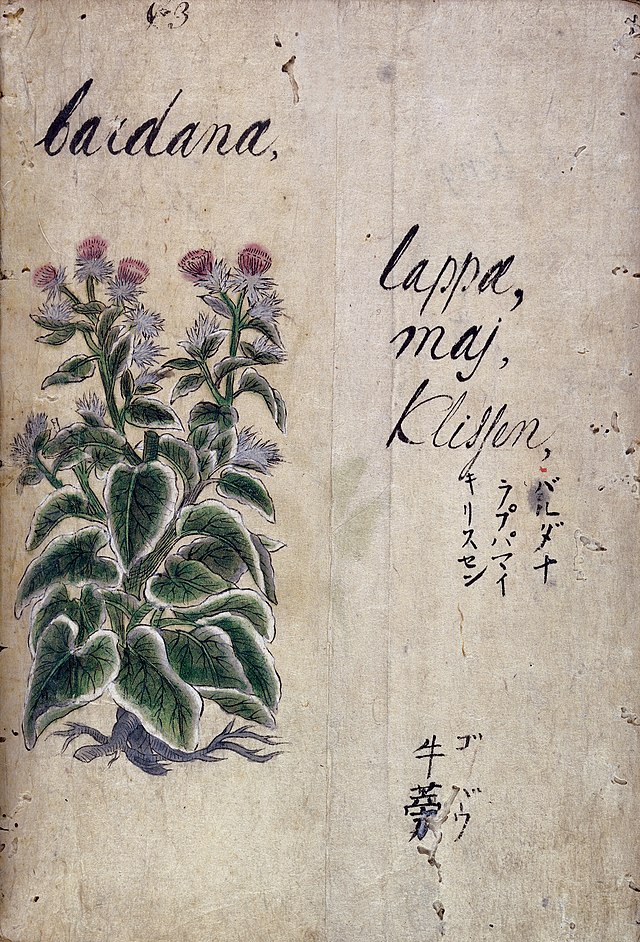 № 3
bardana,
lappa,
maj,
Klissen,
バルダナ
ラプパマイ
キリスセン
ゴバウ
牛蒡